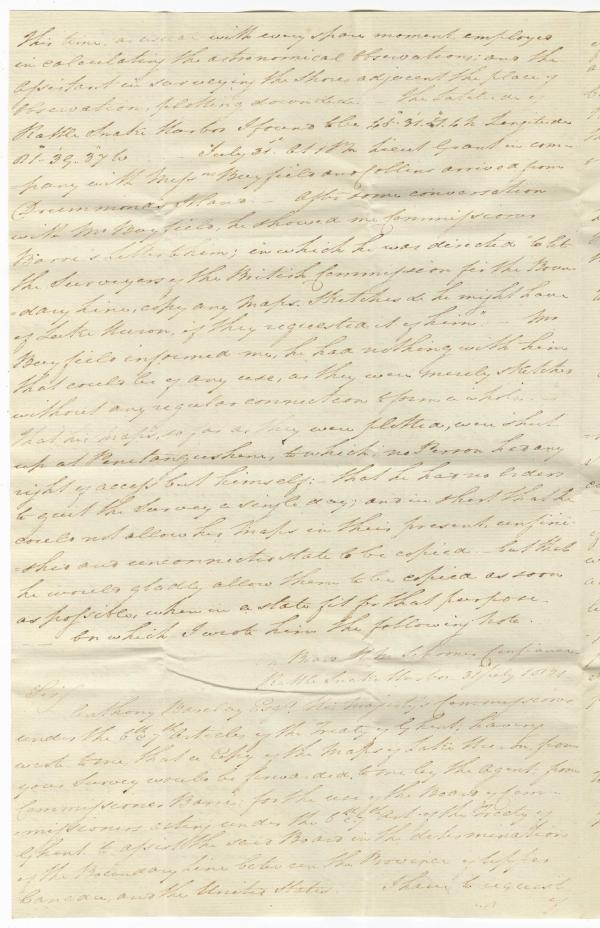 This time, as usual with every spare moment employed
in calculating the astronomical Observations; and the
Assistant in surveying the Shores adjacent the place of
Observation, plotting soundings — The Latitude of
Rattle Snake Harbor I found to be 45°. 31'. N. & Longitude
81°. 39'. 37" W — July 31st. At 1 PM Lieut Grant in com-
pany with Messrs Bayfield and Collins arrived from
Drummonds Island — After some conversation
with Mr Bayfield, he showed me Commissioner
Barrie's letter to him; in which he was directed "to let
the Surveyors of the British Commission for the Boun
-dary Line, copy any Maps, Sketches &c he might have
of Lake Huron, if they requested it of him." Mr
Bayfield informed me, he had nothing with him
that could be of any use, as they were merely sketches
without any regular connection to form a whole —
that his maps, so far as they were plotted, were shut
up at Penetanguishene, to which no Person has any
right of access but himself:— that he has no orders
to quit the Survey a single day; and in short that he
could not allow his Maps in their present unfini-
-shed and unconnected state to be copied — but that
he would gladly allow them to be copied as soon
as possible, when in a state fit for that purpose.
On which I wrote him the following Note.
on Board the Schooner Confiance
Rattle Snake Harbor 31 July 1821
Sir,
Anthony Barclay Esqr. His Majesty's Commissioner
under the 6th & 7th Articles of the Treaty of Ghent, having
wrote to me that a Copy of the Maps of Lake Huron, from
your Survey would be forwarded to me by the Agent, from
Commissioner Barrie; for the use of the Board of Com-
-missioners acting under the 6th & 7th Art. of the Treaty of
Ghent to assist the said Board in the determination
of the Boundary line between the Province of Upper
Canada, and the United States. I have to request
of